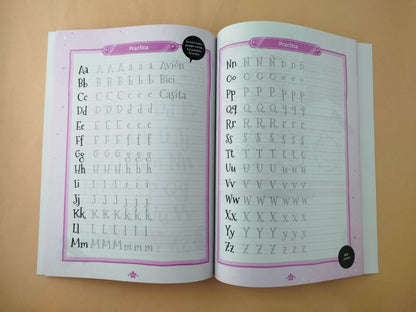 Practica
Aa A A A a a a Avión
Bb B B B b b b Bici
Cc C C C c c c Casita
Dd D D D d d d
Ee E E E e e e
Ff F F F f f f
Gg G G G g g g
Hh H H H h h h
Ii I I I i i i
Jj J J J j j j
Kk K K K k k k
Ll L L L l l l
Mm M M M m m m
Practica
Nn N N N n n n
Oo O O O o o o
Pp P P P p p p
Qq Q Q Q q q q
Rr R R R r r r
Ss S S S s s s
Tt T T T t t t
Uu U U U u u u
Vv V V V v v v
Ww W W W w w w
Xx X X X x x x
Yy Y Y Y y y y
Zz Z Z Z z z z